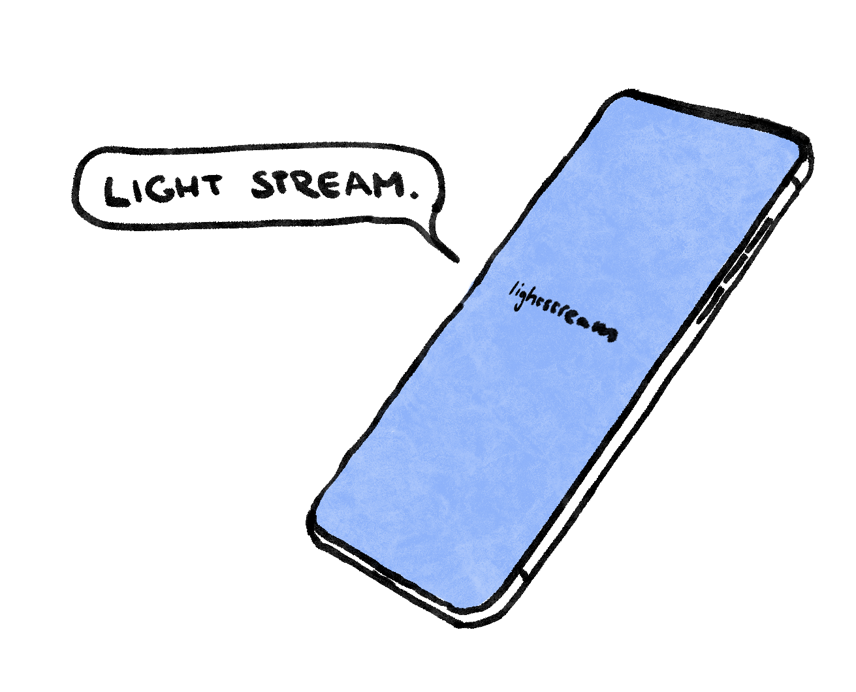 LIGHT STREAM.
lightstream